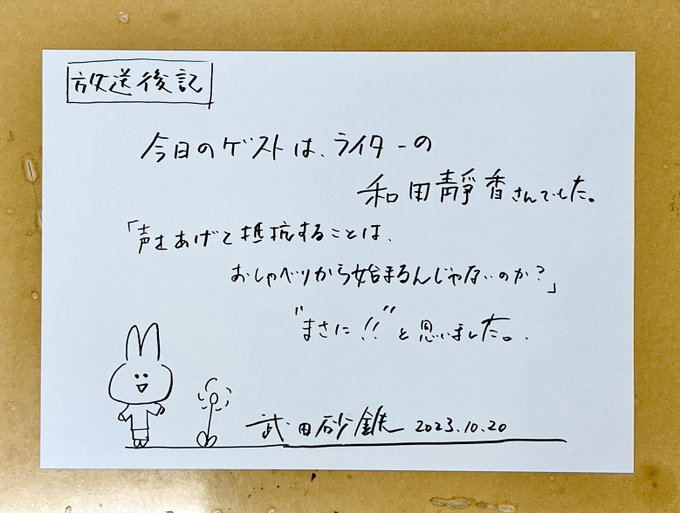 放送後記
今日のゲストは、ライターの
和田靜香さんでした。
「声をあげて抵抗することは、
おしゃべりから始まるんじゃないのか?」
"まさに!!"と思いました。
武田砂鉄 2023.10.20